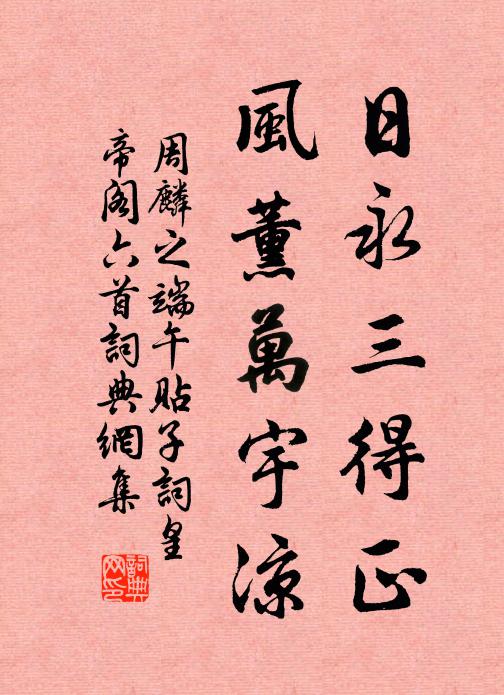 日永三得正
風薰萬宇涼
周麟之端午貼子詞皇
帝閣六首詞典網集
詞典
网印